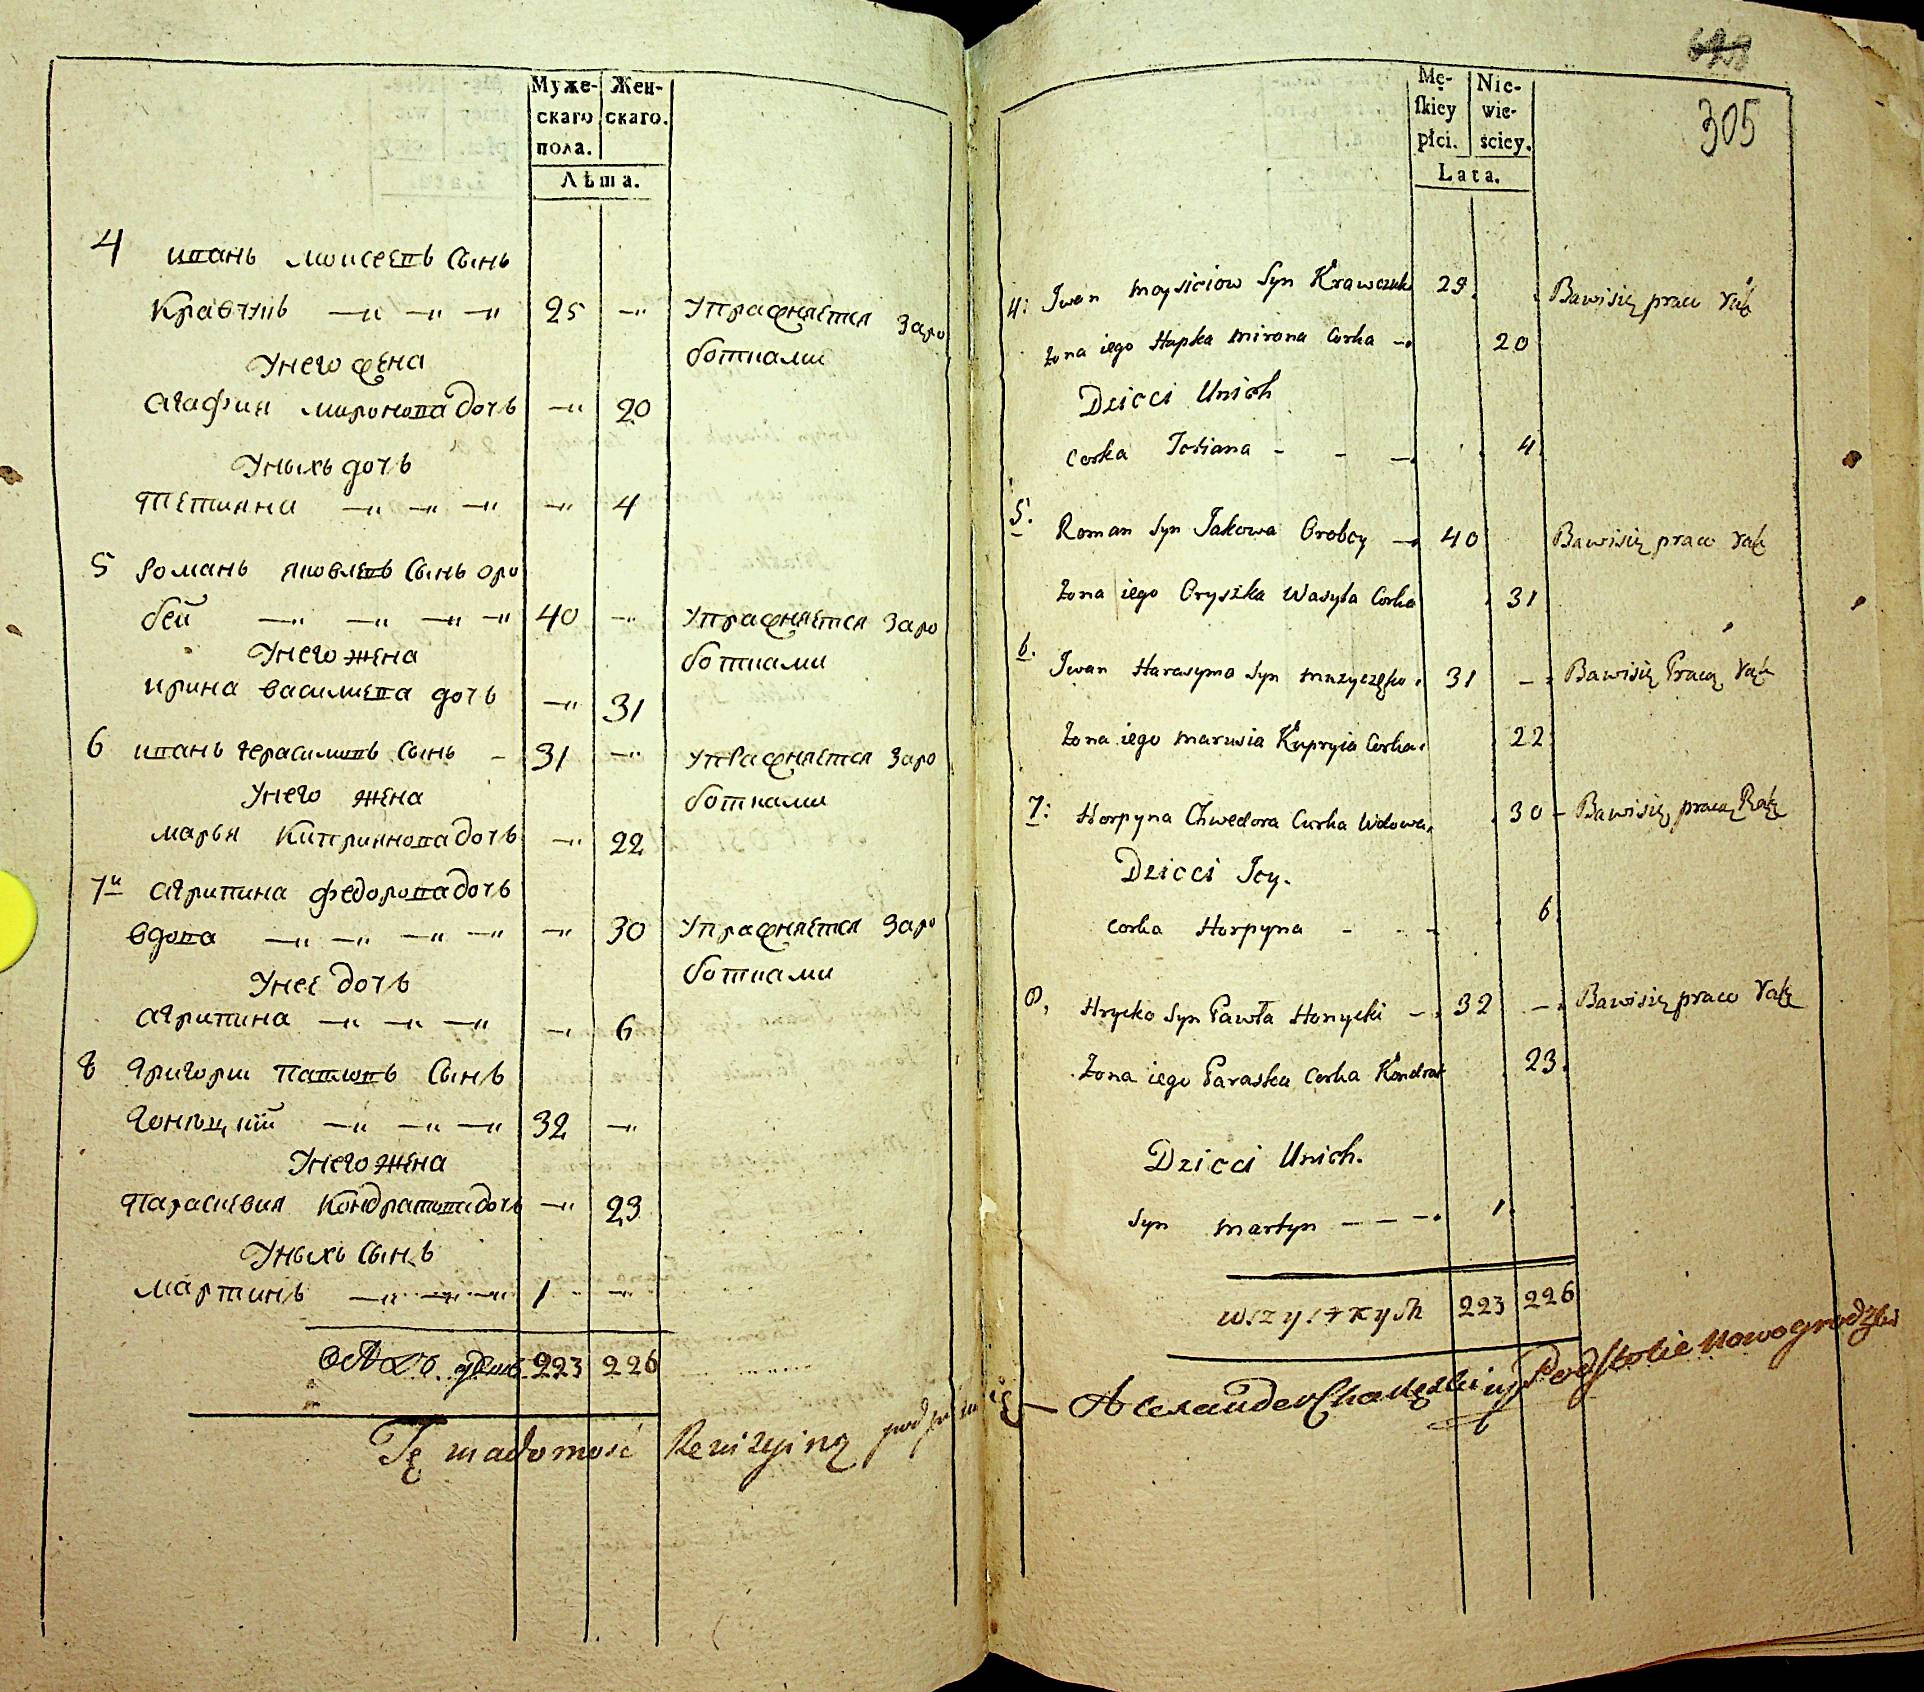 Муже-
скаго
пола.
Жен-
скаго.
Лѣта.
4 иванъ моисеевъ сынъ
кравчукъ —„ —„ —„ 25 —„ упражняется заро
ботками
унего жена
агафия миронова дочь —„ 20
уныхъ дочь
тетияна —„ —„ —„ —„ 4
5 романъ яковлевъ сынъ оро
бей —„ —„ —„ —„ 40 —„ упражняется заро
ботками
унего жена
ирина василиева дочь —„ 31
6 иванъ герасимовъ сынъ – 31 —„ упражняется заро
ботками
унего жена
марья киприянова дочь —„ 22
7и агрипина федорова дочь
вдова —„ —„ —„ —„ —„ 30 упражняется заро
ботками
унее дочь
агрипина —„ —„ —„ —„ 6
8 григории павловъ сынъ
32 —„
унего жена
параскевия кондратова дочь —„ 23
уныхъ сынъ
мартинъ —„ —„ —„ 1 —„
223 226
Tę wiadomość Rewizyiną
305
Mę-
ſkiey
płci.
Nie-
wie-
ściey.
Lata.
4: Iwan Moysieiow Syn Krawczuk 29. Bawi się praco rąk
Żona iego Hapka Mirona Corka — 20
Dzieci Unich
Corka Tetiana - - — 4
5. Roman Syn Jakowa Orobey — 40 Bawi się praco rąk
Żona iego Oryszka Wasyla Corka 31
6. Iwan Harasyma Syn 31 – Bawi się Pracą rąk
Żona iego Marusia Kupryia Corka. 22
7: Horpyna Chwedora Curka Wdowa. 30 – Bawi się pracą Rąk
Dzieci Jey.
Corka Horpyna - - - 6
8. Hrycko Syn Pawła Honycki — 32 — Bawi się praco rąk
Żona iego Paraska Corka Kondrat 23.
Dzieci Unich.
Syn Martyn — — —. 1.
wszystkych 223 226
Alexander Podstolic Nowogrodzki